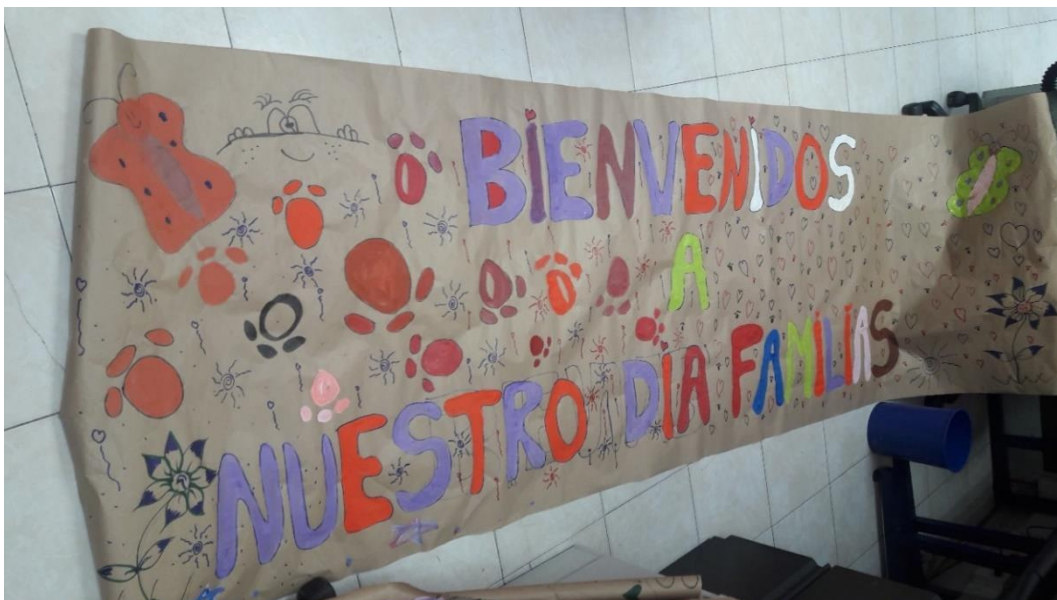 BIENVENIDOS
A
NUESTRO DIA FAMILIAS